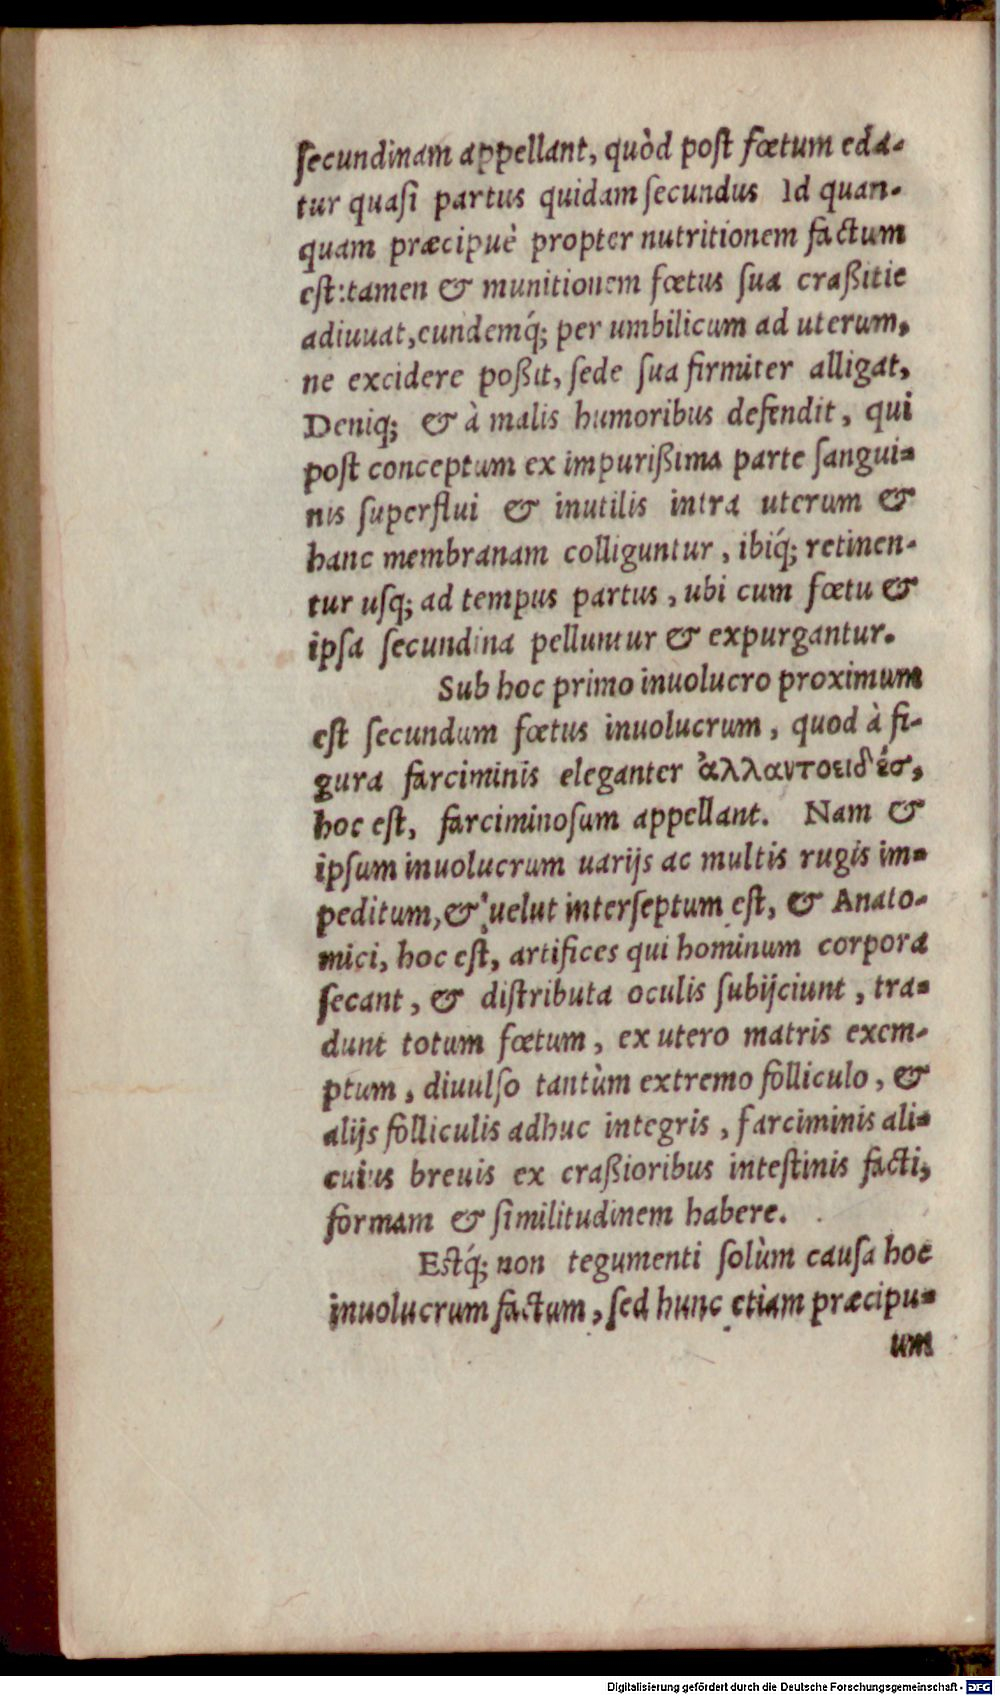 ſecundinam appellant, quòd post fœtum eda-
tur quaſi partus quidam ſecundus Id quan-
quam præcipuè propter nutritionem factum
est: tamen & munitionem fœtus ſua craßitie
adiuuat, eundemq́; per umbilicum ad uterum,
ne excidere poßit, ſede ſua firmiter alligat,
Deniq; & à malis humoribus defendit, qui
post conceptum ex impurißima parte ſangui-
nis ſuperflui & inutilis intra uterum &
hanc membranam colliguntur, ibiq́; retinen-
tur uſq; ad tempus partus, ubi cum fœtu &
ipſa ſecundina pelluntur & expurgantur.
Sub hoc primo inuolucro proximum
est ſecundum fœtus inuolucrum, quod à fi-
gura farciminis eleganter ἀλλαντοειδές,
hoc est, farciminoſum appellant. Nam &
ipſum inuolucrum uarijs ac multis rugis im-
peditum, & uelut interſeptum est, & Anato-
mici, hoc est, artifices qui hominum corpora
ſecant, & distributa oculis ſubijciunt, tra-
dunt totum fœtum, ex utero matris exem-
ptum, diuulſo tantùm extremo folliculo, &
alijs folliculis adhuc integris, farciminis ali-
cuius breuis ex craßioribus intestinis facti,
formam & ſimilitudinem habere.
Estq́; non tegumenti ſolùm cauſa hoc
inuolucrum factum, ſed hunc etiam præcipu-
um
Digitalisierung gefördert durch die Deutsche Forschungsgemeinschaft - DFG